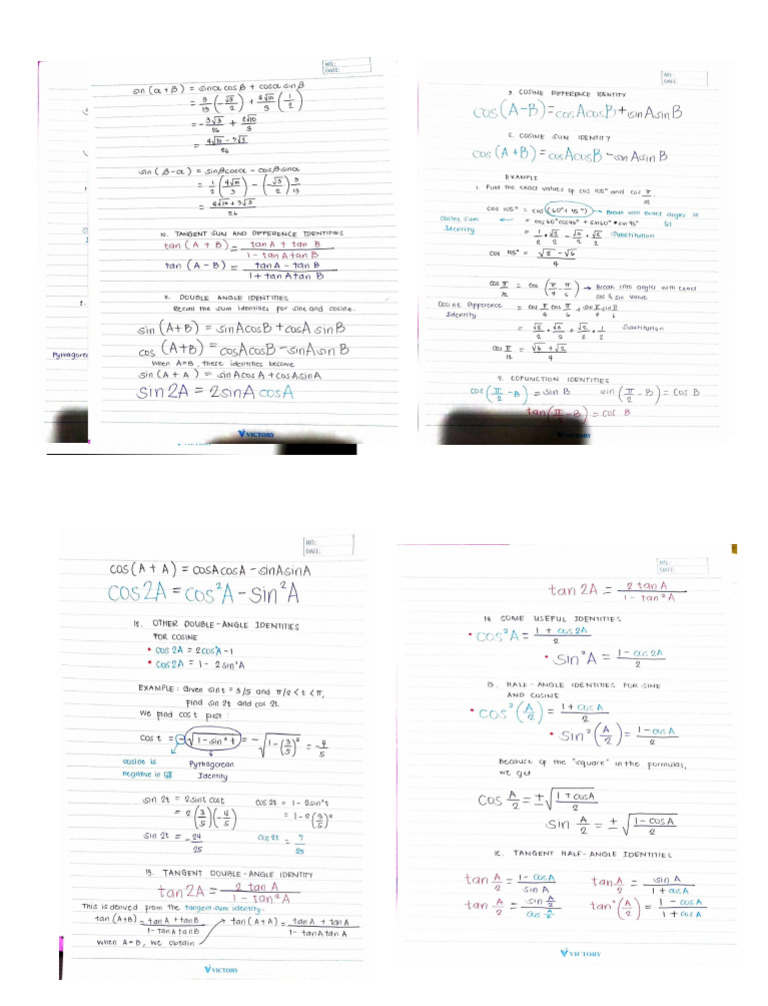 NO.:
DATE:
sin (α + β) = sinα cosβ + cosα sinβ
= 3/13 (-√3/2) + 4√10/3 (1/2)
= -3√3/26 + 2√10/3
= 4√10 - 3√3/26
sin (β-α) = sinβcosα - cosβsinα
= 1/2 (4√10/3) - (-√3/2) 3/13
= 4√10 + 3√3/26
10. TANGENT SUM AND DIFFERENCE IDENTITIES
tan (A + B) = tan A + tan B/1 - tan A tan B
tan (A - B) = tan A - tan B/1 + tan A tan B
DOUBLE ANGLE IDENTITIES
Recall the sum identities for sine and cosine.
sin (A+B) = sinAcosB + cosA sinB
cos (A+B) = cosAcosB - sinAsinB
When A=B, these identities become
sin (A + A) = sinAcosA + cosAsinA
sin2A = 2sinA cosA
Pythagorea
VICTORY
NO.:
DATE:
COSINE DIFFERENCE IDENTITY
cos(A-B) = cosAcosB + sinAsinB
COSINE SUM IDENTITY
cos (A+B) = cosAcosB - sinAsinB
EXAMPLE
1. Find the exact values of cos 105° and cos π/12
cos 105° = cos (60° + 45°) → Break into exact angles is
Cosine Sum ← = cos60°cos45° + sin60° • sin45°
Identity = 1/2 • √2/2 - √3/2 • √2/2 Substitution
cos 105° = √2 - √6/4
cos π/12 = cos (π/4 - π/6) → Break into angles with exact
cos & sin value
Cosine Difference = cos π/4 cos π/6 + sin π/4 sin π/6
Identity = √2/2 • √3/2 + √2/2 • 1/2 Substitution
cos π/12 = √6 + √2/4
9. COFUNCTION IDENTITIES
cos (π/2 - B) = sin B sin (π/2 - B) = cos B
tan (π/2 - B) = cot B
VICTORY
NO.:
DATE:
cos(A + A) = cosAcosA - sinAsinA
cos2A = cos²A - sin²A
12. OTHER DOUBLE-ANGLE IDENTITIES
FOR COSINE
• cos 2A = 2cos²A - 1
• cos2A = 1 - 2sin²A
EXAMPLE: Given sin t = 3/5 and π/2 < t < π,
find sin 2t and cos 2t.
We find cos t first:
cos t = -√1-sin²t = -√1-(3/5)² = -4/5
cosine is Pythagorean
negative in QII Identity
sin 2t = 2sint cost cos 2t = 1 - 2sin²t
= 2 (3/5)(-4/5) = 1-2(3/5)²
sin 2t = -24/25 cos 2t = 7/25
13. TANGENT DOUBLE-ANGLE IDENTITY
tan 2A = 2 tan A/1 - tan²A
This is derived from the tangent sum identity.
tan (A+B) = tan A + tan B/1 - tan A tan B → tan (A+A) = tan A + tan A/1 - tan A tan A
When A = B, we obtain
VICTORY
NO.:
DATE:
tan 2A = 2 tan A/1 - tan²A
14. SOME USEFUL IDENTITIES
• cos²A = 1 + cos2A/2
• sin²A = 1 - cos 2A/2
15. HALF-ANGLE IDENTITIES FOR SINE
AND COSINE
• cos² (A/2) = 1 + cos A/2
• sin² (A/2) = 1 - cos A/2
Because of the "square" in the formulas,
we get
cos A/2 = ±√1 + cosA/2
sin A/2 = ±√1 - cosA/2
16. TANGENT HALF-ANGLE IDENTITIES
tan A/2 = 1 - cosA/sin A tan A/2 = sin A/1 + cosA
tan A/2 = sin A/2/cos A/2 tan² (A/2) = 1 - cosA/1 + cosA
VICTORY